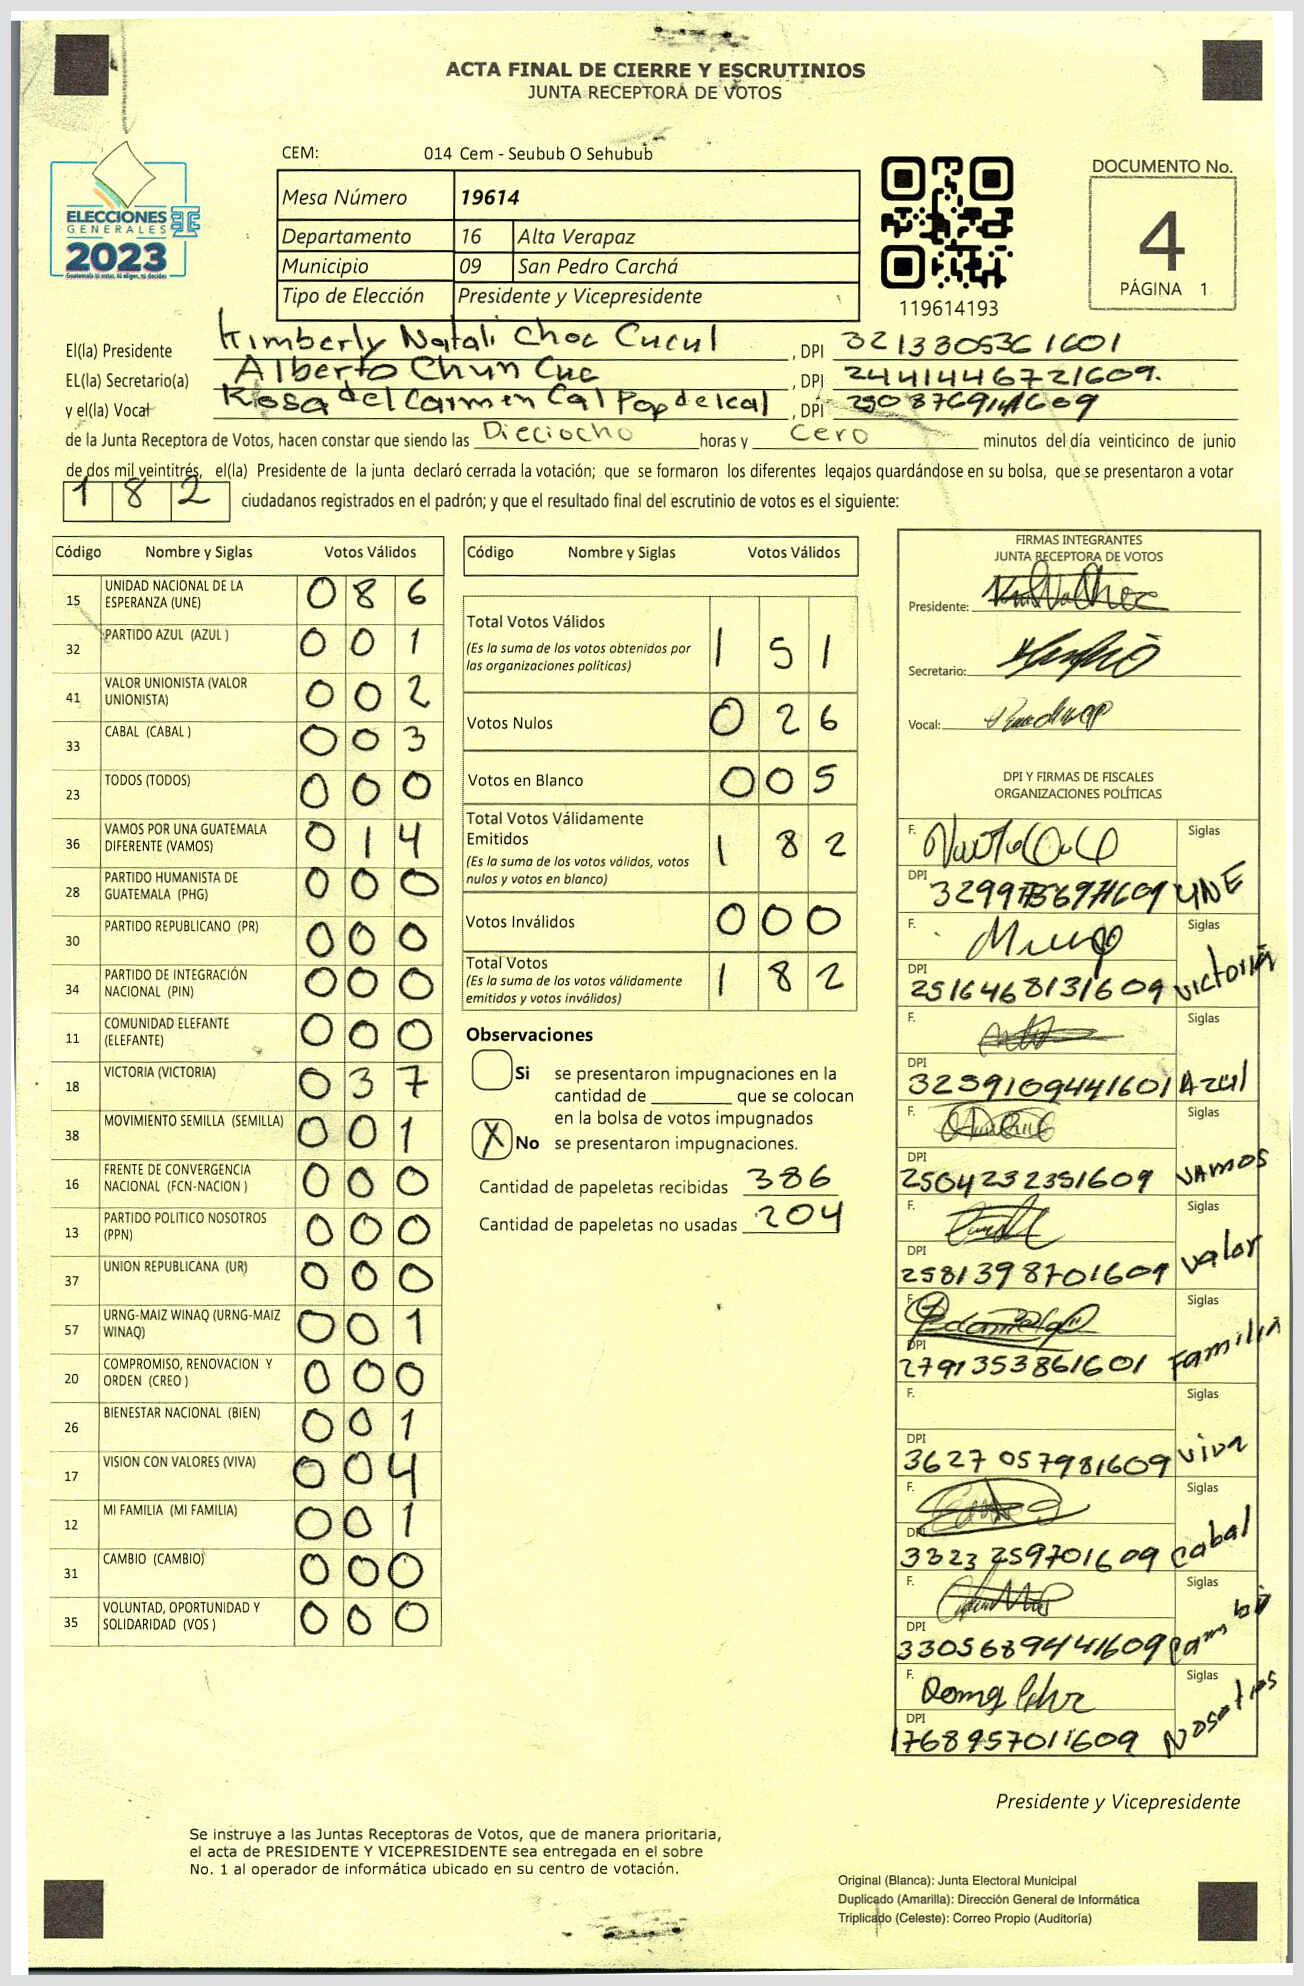 ACTA FINAL DE CIERRE Y ESCRUTINIOS
JUNTA RECEPTORA DE VOTOS
CEM: 014 Cem - Seubub O Sehubub
ELECCIONES
GENERALES
2023
Mesa Número 19614
Departamento 16 Alta Verapaz
Municipio 09 San Pedro Carchá
Tipo de Elección Presidente y Vicepresidente
119614193
DOCUMENTO No.
4
PÁGINA 1
El(la) Presidente Kimberly Natali Choc Cucul , DPI 3213305361601
EL(la) Secretario(a) Alberto Chun Cuc , DPI 2441446721609.
y el(la) Vocal Rosa del Carmen Cal Pop de Ical , DPI
de la Junta Receptora de Votos, hacen constar que siendo las Dieciocho horas y cero minutos del día veinticinco de junio
de dos mil veintitrés, el(la) Presidente de la junta declaró cerrada la votación; que se formaron los diferentes legajos guardándose en su bolsa, que se presentaron a votar
182 ciudadanos registrados en el padrón; y que el resultado final del escrutinio de votos es el siguiente:
Código Nombre y Siglas Votos Válidos
15 UNIDAD NACIONAL DE LA ESPERANZA (UNE) 086
32 PARTIDO AZUL (AZUL ) 001
41 VALOR UNIONISTA (VALOR UNIONISTA) 002
33 CABAL (CABAL ) 003
23 TODOS (TODOS) 000
36 VAMOS POR UNA GUATEMALA DIFERENTE (VAMOS) 014
28 PARTIDO HUMANISTA DE GUATEMALA (PHG) 000
30 PARTIDO REPUBLICANO (PR) 000
34 PARTIDO DE INTEGRACIÓN NACIONAL (PIN) 000
11 COMUNIDAD ELEFANTE (ELEFANTE) 000
18 VICTORIA (VICTORIA) 037
38 MOVIMIENTO SEMILLA (SEMILLA) 001
16 FRENTE DE CONVERGENCIA NACIONAL (FCN-NACION ) 000
13 PARTIDO POLITICO NOSOTROS (PPN) 000
37 UNION REPUBLICANA (UR) 000
57 URNG-MAIZ WINAQ (URNG-MAIZ WINAQ) 001
20 COMPROMISO, RENOVACION Y ORDEN (CREO ) 000
26 BIENESTAR NACIONAL (BIEN) 001
17 VISION CON VALORES (VIVA) 004
12 MI FAMILIA (MI FAMILIA) 001
31 CAMBIO (CAMBIO) 000
35 VOLUNTAD, OPORTUNIDAD Y SOLIDARIDAD (VOS ) 000
Código Nombre y Siglas Votos Válidos
Total Votos Válidos 151
(Es la suma de los votos obtenidos por
las organizaciones políticas)
Votos Nulos 026
Votos en Blanco 005
Total Votos Válidamente
Emitidos 182
(Es la suma de los votos válidos, votos
nulos y votos en blanco)
Votos Inválidos 000
Total Votos 182
(Es la suma de los votos válidamente
emitidos y votos inválidos)
Observaciones
Si se presentaron impugnaciones en la
cantidad de ________ que se colocan
en la bolsa de votos impugnados
X No se presentaron impugnaciones.
Cantidad de papeletas recibidas 386
Cantidad de papeletas no usadas 204
FIRMAS INTEGRANTES
JUNTA RECEPTORA DE VOTOS
Presidente:
Secretario:
Vocal:
DPI Y FIRMAS DE FISCALES
ORGANIZACIONES POLÍTICAS
F. Siglas
DPI UNE
F. Siglas
DPI 2516468131609 victoria
F. Siglas
DPI 3259109441601 Azul
F. Siglas
DPI 2504232351609 VAMOS
F. Siglas
DPI 2581398701609 valor
F. Siglas
DPI 2791353861601 Familia
F. Siglas
DPI 3627057981609 viva
F. Siglas
DPI 3323259701609 cabal
F. Siglas
DPI 3305689441609 cambio
F. Siglas
DPI 1768957011609 Nosotros
Presidente y Vicepresidente
Se instruye a las Juntas Receptoras de Votos, que de manera prioritaria,
el acta de PRESIDENTE Y VICEPRESIDENTE sea entregada en el sobre
No. 1 al operador de informática ubicado en su centro de votación.
Original (Blanca): Junta Electoral Municipal
Duplicado (Amarilla): Dirección General de Informática
Triplicado (Celeste): Correo Propio (Auditoría)